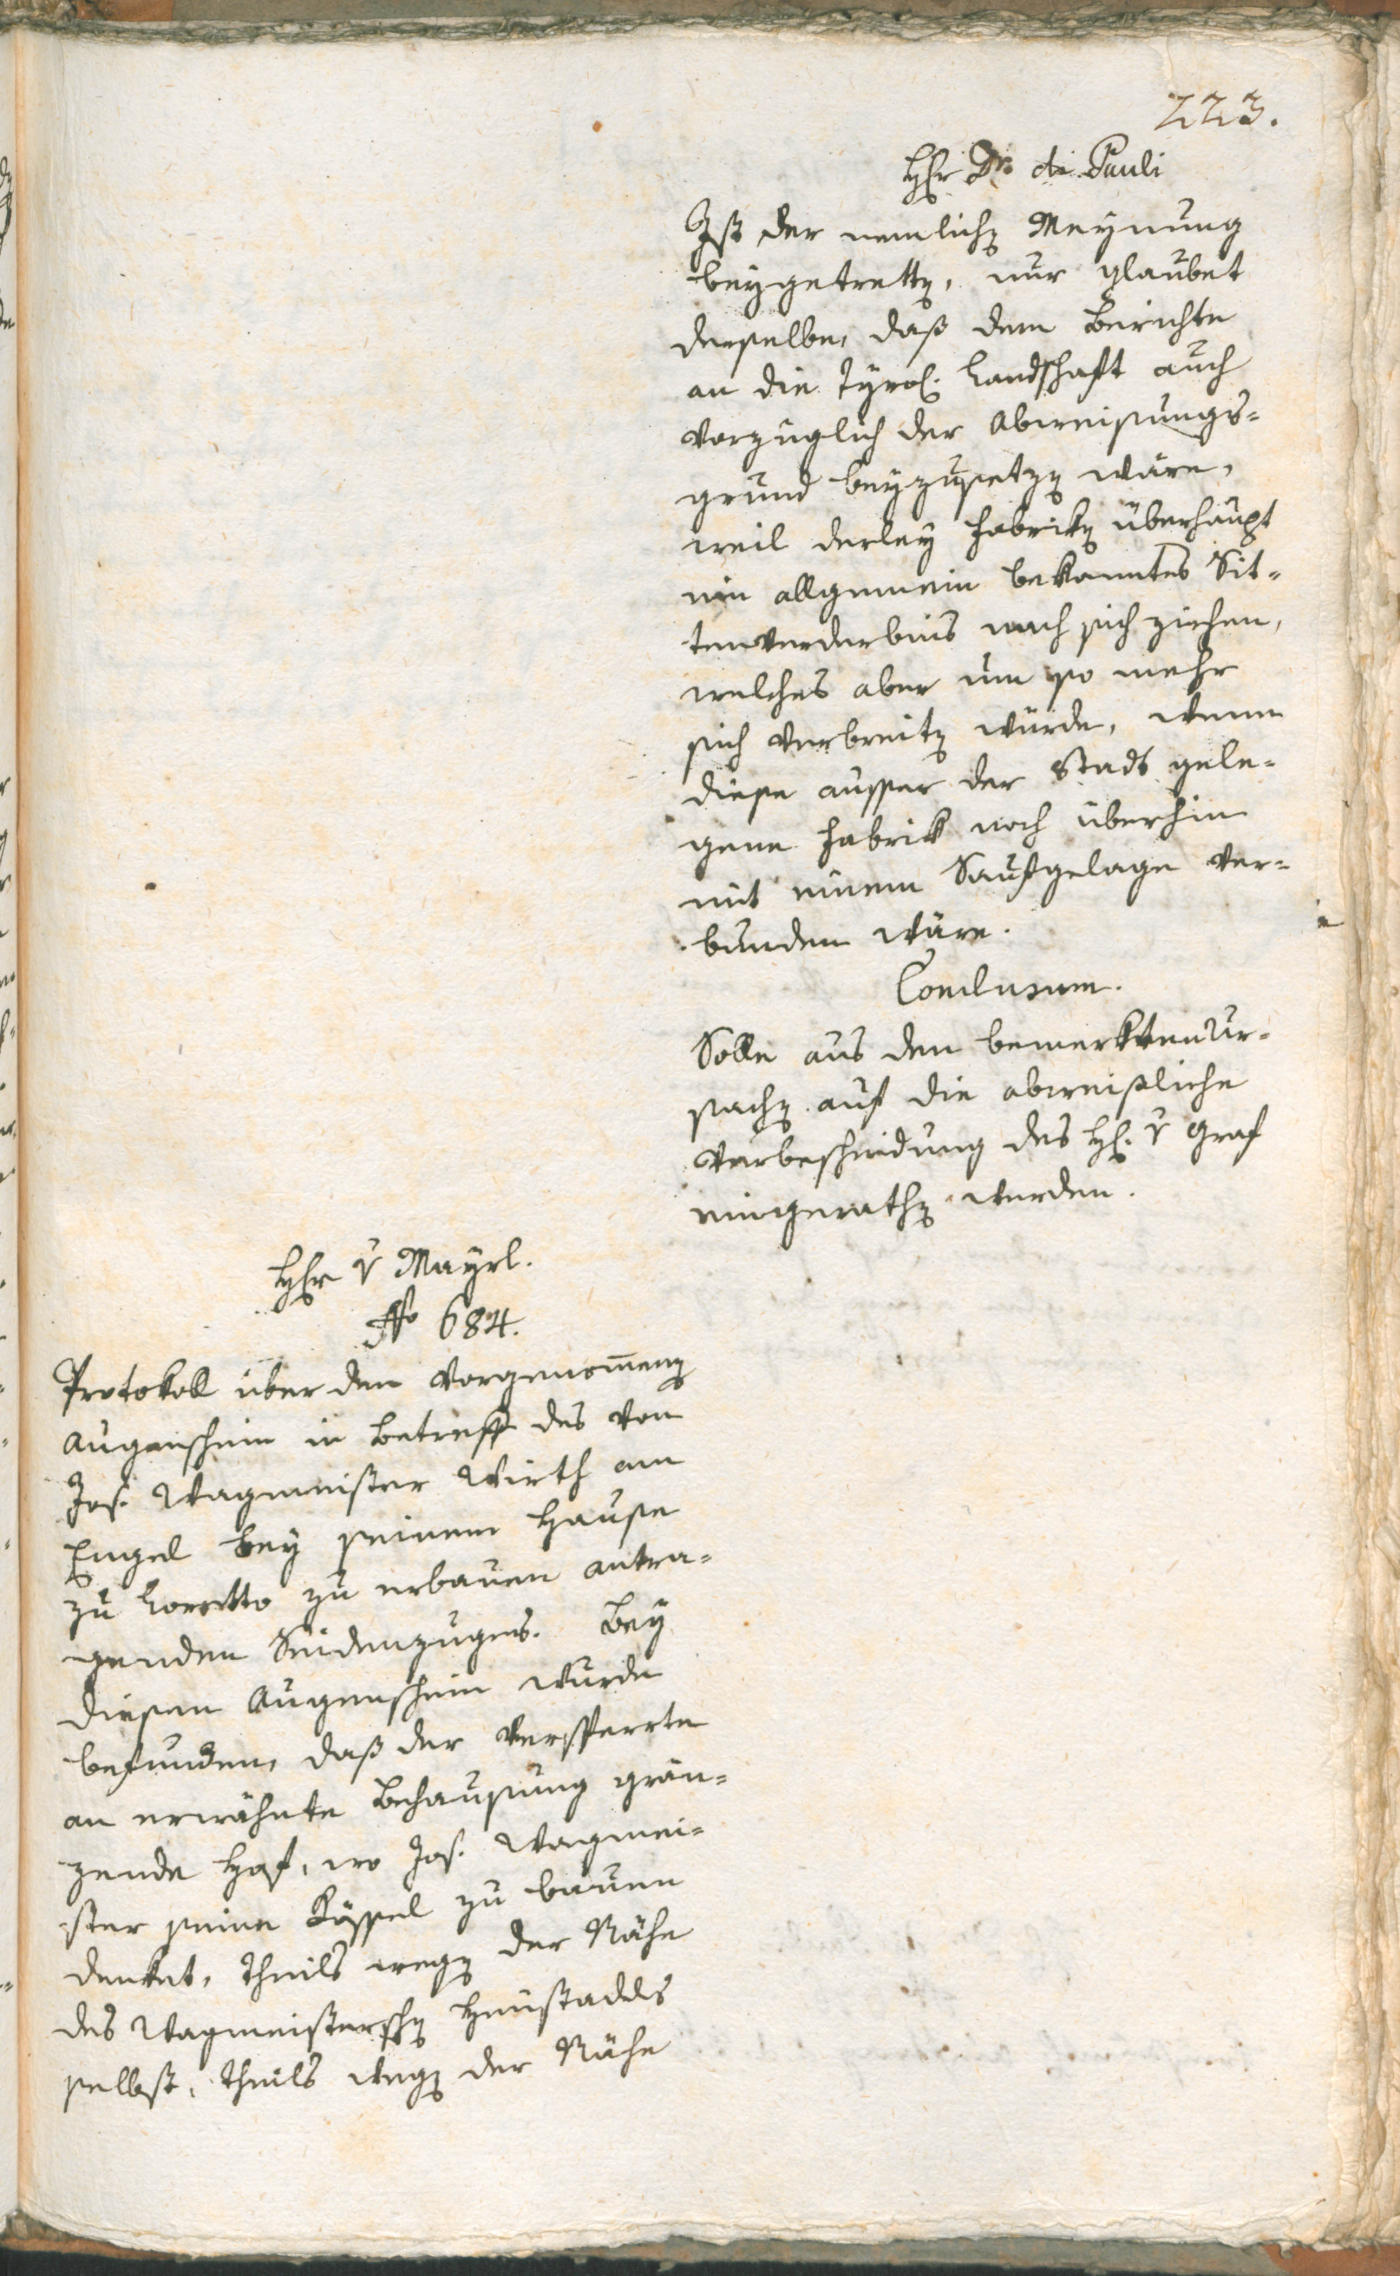 223.
Herr Dr. di Pauli
Ist der nemlichen Meynung
beygetretten, nur glaubet
derselbe, daß dem Berichte
an die tyrol. Landschaft auch
vorzüglich der Abweisungs-
grund beyzusetzen wäre,
weil derley Fabriken überhaupt
ein allgemein bekanntes Sit-
tenverderbnis nach sich ziehen,
welches aber um so mehr
sich verbreiten würde, wenn
diese ausser der Stadt gele-
gene Fabrik noch überhin
mit einem Saufgelage ver-
bunden wäre.
Conclusum.
Solle aus den bemerkten Ur-
sachen auf die abweisliche
Verbescheidung des H. v Graf
eingerathen werden.
Herr v Mayrl.
No 684.
Protokoll über den vorgenommenen
Augenschein in Betreff des von
Jos. Wagmeister Wirth am
Engel bey seinem Hause
zu Loretto zu erbauen antra-
genden Seidenzuges. Bey
diesem Augenschein wurde
befunden, daß der versperrte
an erwähnte Behausung grän-
zende Hof, wo Jos. Wagmei-
ster seine Kössel zu bauen
denket, theils wegen der Nähe
des Wagmeisterschen Heustadls
selbst, theils wegen der Nähe